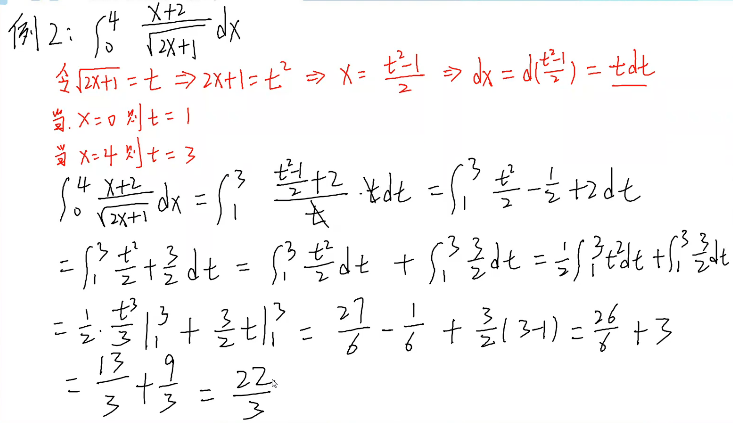 例2: ∫₀⁴ (x+2)/√(2x+1) dx
令√(2x+1) = t ⇒ 2x+1 = t² ⇒ x = (t²-1)/2 ⇒ dx = d((t²-1)/2) = tdt
当. x=0 则 t = 1
当 x=4 则 t = 3
∫₀⁴ (x+2)/√(2x+1) dx = ∫₁³ ((t²-1)/2+2)/t · tdt = ∫₁³ t²/2 - 1/2 + 2 dt
= ∫₁³ t²/2 + 3/2 dt = ∫₁³ t²/2 dt + ∫₁³ 3/2 dt = 1/2 ∫₁³ t²dt + ∫₁³ 3/2 dt
= 1/2 · t³/3 |₁³ + 3/2 t |₁³ = 27/6 - 1/6 + 3/2 (3-1) = 26/6 + 3
= 13/3 + 9/3 = 22/3